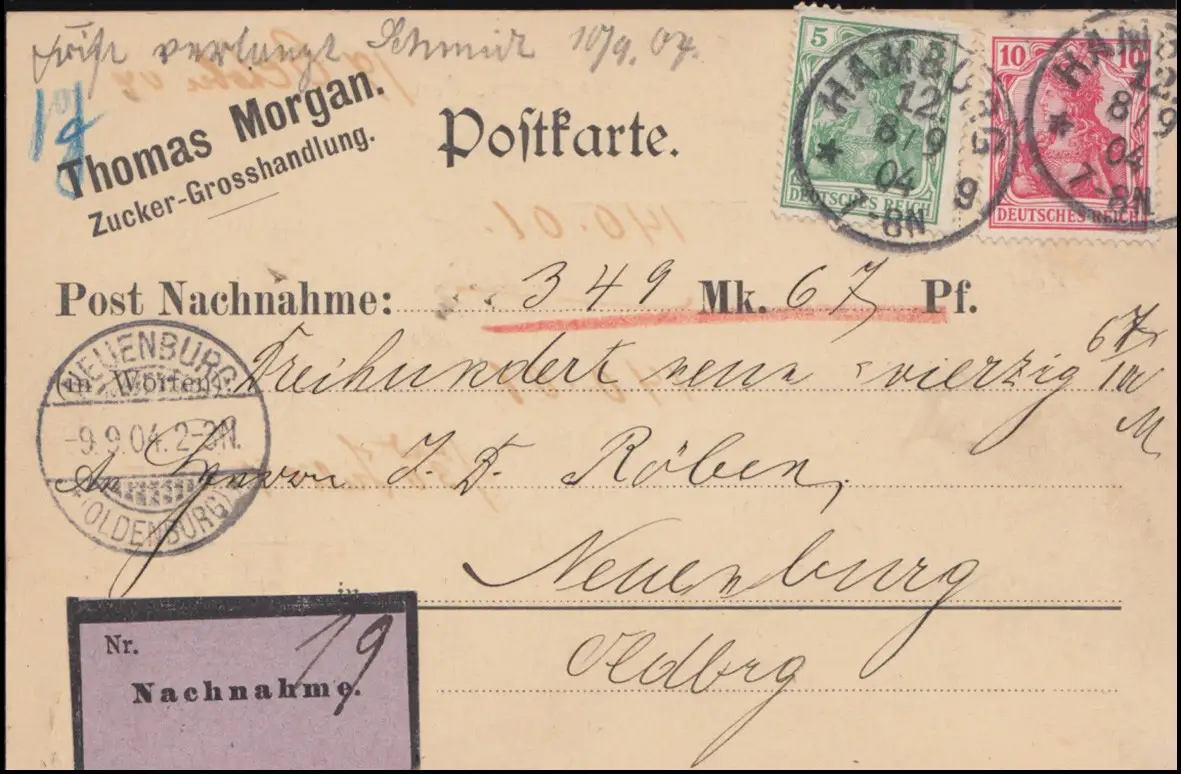 Frist verlangt Schmidt 10/9.04.
19
Thomas Morgan.
Zucker-Grosshandlung.
Postkarte.
5
DEUTSCHES REICH
10 10
DEUTSCHES REICH
HAMBURG
12.
8/9
04
7-8N
* 9
HAMB
12.
8/9
04
7-8N
*
Post Nachnahme: 349 Mk. 67 Pf.
(in Worten) Dreihundert neun - vierzig 67/100 M
NEUENBURG
-9.9.04.2-3N.
(OLDENBURG)
An Herrn J. D. Röben,
in Neuenburg
Oldbrg
Nr. 19
Nachnahme.